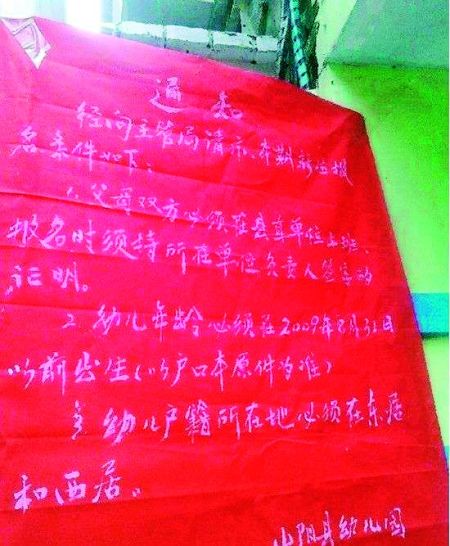 通知
经向主管局请示、本期新生报
名条件如下：
1、父母双方必须在县直单位上班、
报名时须持所在单位负责人签字的
证明。
2、幼儿年龄必须在2009年8月31日
以前出生（以户口本原件为准）
3、幼儿户籍所在地必须在东居
和西居。
山阳县幼儿园